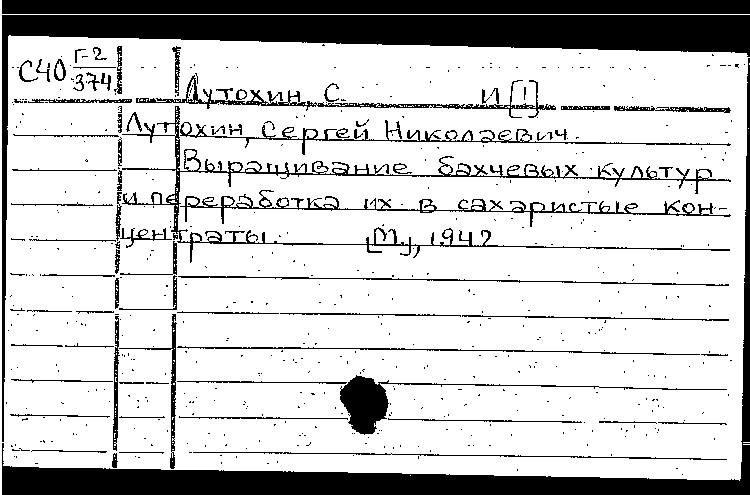 С40 Г-2/374
Лутохин, С. И [1]
Лутохин, Сергей Николаевич.
Выращивание бахчевых культур
и переработка их в сахаристые кон-
центраты. [М.], 1942